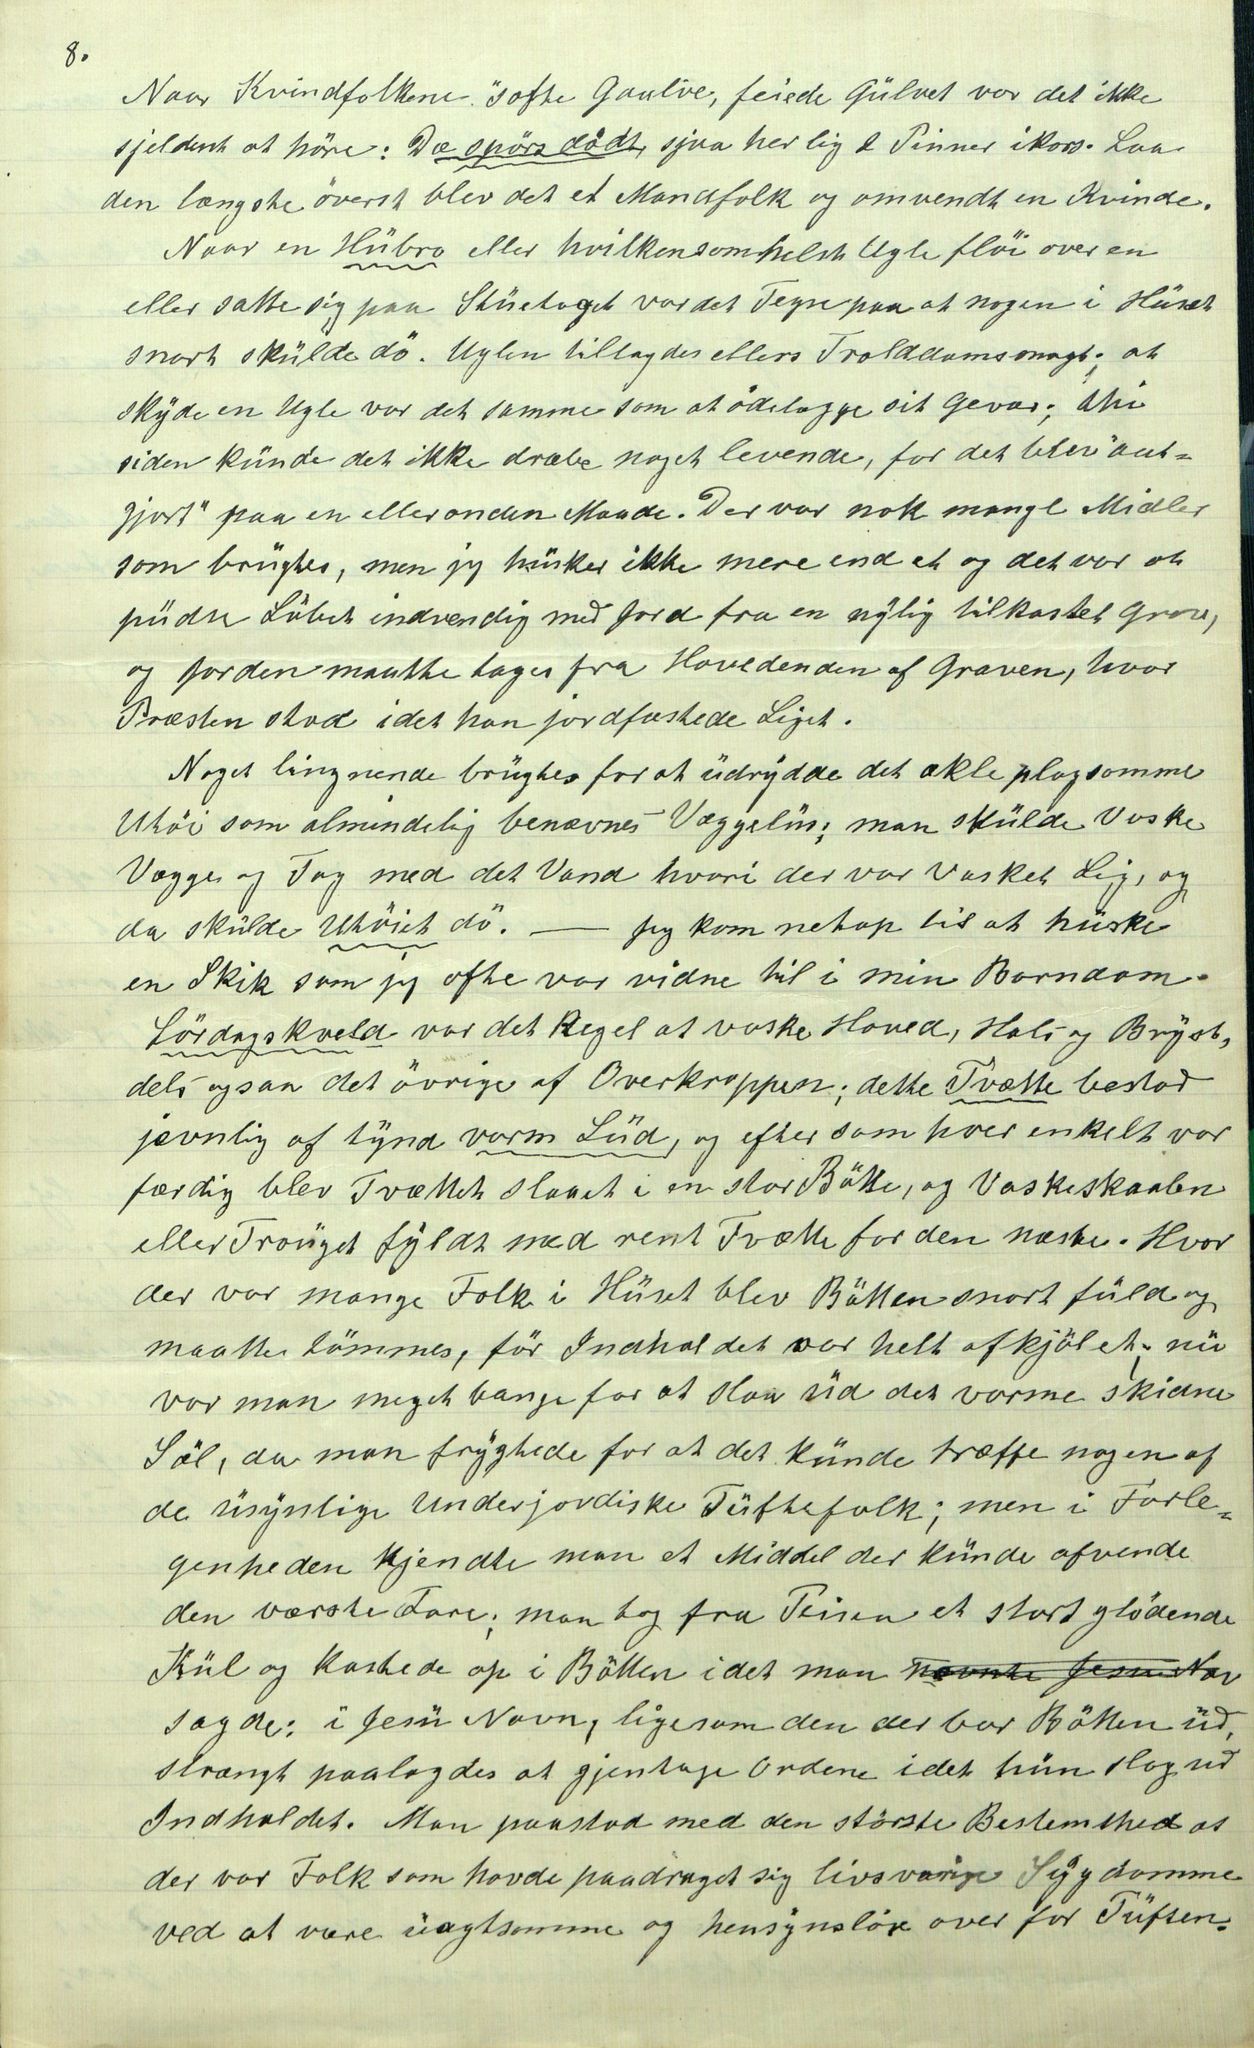 8.
Naar Kvindfolkene "softe Gaulve, feiede Gülvet var det ikke
sjeldent at høre: Dæ spörs dödt, sjaa her lig 2 Pinner ikors. Laa
den længste överst blev det et Mandfolk og omvendt en Kvinde.
Naar en Hübro eller hvilkensomhelst Ugle flöi over en
eller satte sig paa Stüetaget var det Tegn paa at nogen i Hüset
snart skülde dö. Uglen tillagdes ellers Trolddomsmagt; at
skyde en Ugle var det samme som at ödelægge sit Gevær; thi
siden künde det ikke dræbe noget levende, for det blev "aut-
gjort" paa en eller anden Maade. Der var nok mange Midler
som brügtes, men jeg hüsker ikke mere end et og det var at
püdse Löbet indvendig med Jord fra en nylig tilkastet Grav,
og Jorden maatte tages fra Hovedenden af Graven, hvor
Præsten stod idet han jordfæstede Liget.
Noget lingnende brügtes for at üdrydde det ækle plagsomme
Utöi som almindelig benævnes Væggelüs; man skülde Vaske
Vægge og Tag med det Vand hvori der var vasket Lig, og
da skülde Utöiet dö. — Jeg kom netop til at hüske
en Skik som jeg ofte var vidne til i min Barndom.
Lördagskveld var det Regel at vaske Hoved, Hals og Bryst,
dels ogsaa det övrige af Overkroppen; dette Tvætte bestod
jevnlig af tynd varm Lüd, og efter som hver enkelt var
færdig blev Tvættet slaaet i en stor Bötte, og Vaskeskaalen
eller Traüget fyldt med rent Tvætte for den næste. Hvor
der var mange Folk i Hüset blev Bötten snart füld og
maatte tömmes, för Indholdet var helt afkjölet; nü
var man meget bange for at slaa üd det varme skidne
Söl, da man frygtede for at det künde træffe nogen af
de üsynlige Underjordiske Tüftefolk; men i Forle-
genheden kjendte man et Middel der künde afvende
den værste Fare; man tog fra Peisen et stort glödende
Kül og kastede op i Bötten idet man nævnte Jesu Nav
sagde: i Jesü Navn, ligesom den der bar Bötten üd,
strængt paalagdes at gjentage Ordene idet hün slog üd
Indholdet. Man paastod med den störste Bestemthed at
der var Folk som havde paadraget sig livsvarige Sygdomme
ved at være üagtsomme og hensynslöse over for Tüften.